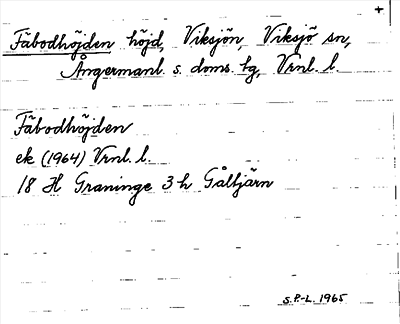 +
Fäbodhöjden höjd, Viksjön, Viksjö sn,
Ångermanl. s. doms. tg, Vrnl. l.
Fäbodhöjden
ek (1964) Vrnl. l.
18 H Graninge 3 h Gåltjärn
S.P-L. 1965